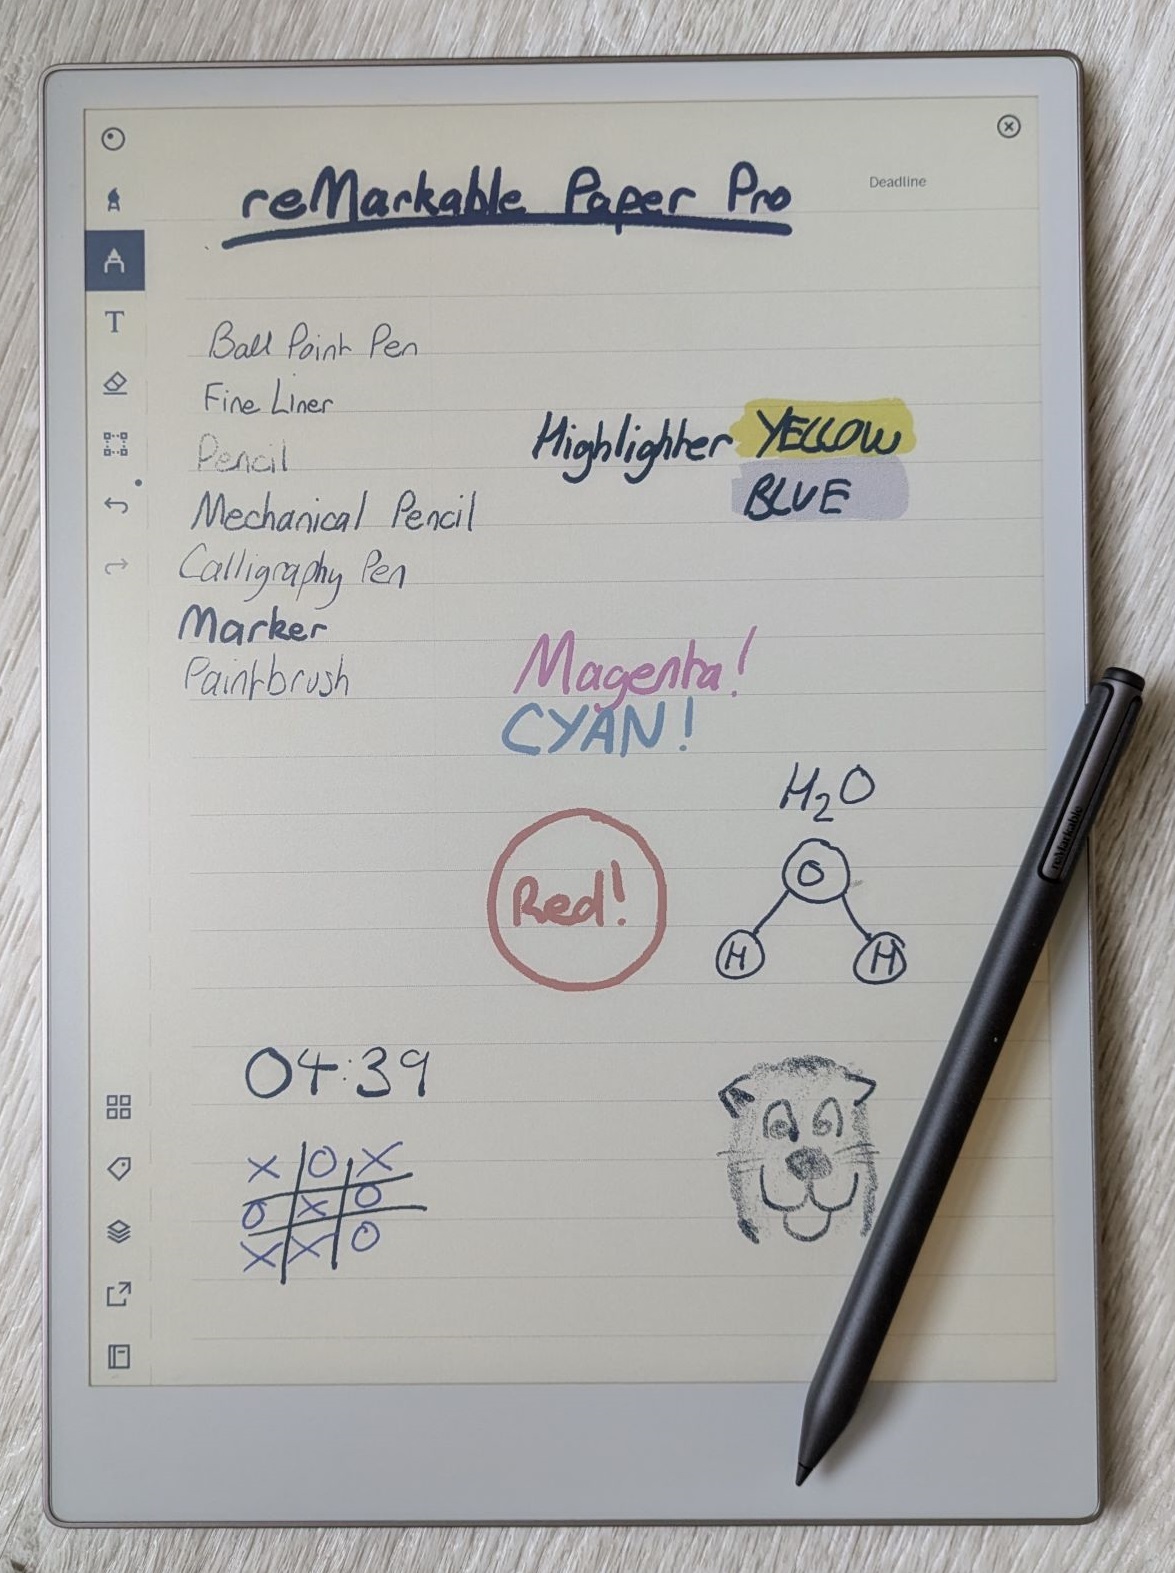 reMarkable Paper Pro
Deadline
T
Ball Point Pen
Fine Liner
Highlighter YELLOW
Pencil
BLUE
Mechanical Pencil
Calligraphy Pen
Marker
Paintbrush
Magenta!
CYAN!
H₂O
O
Red!
H H
reMarkable
04:39
X O X
O X O
X X O